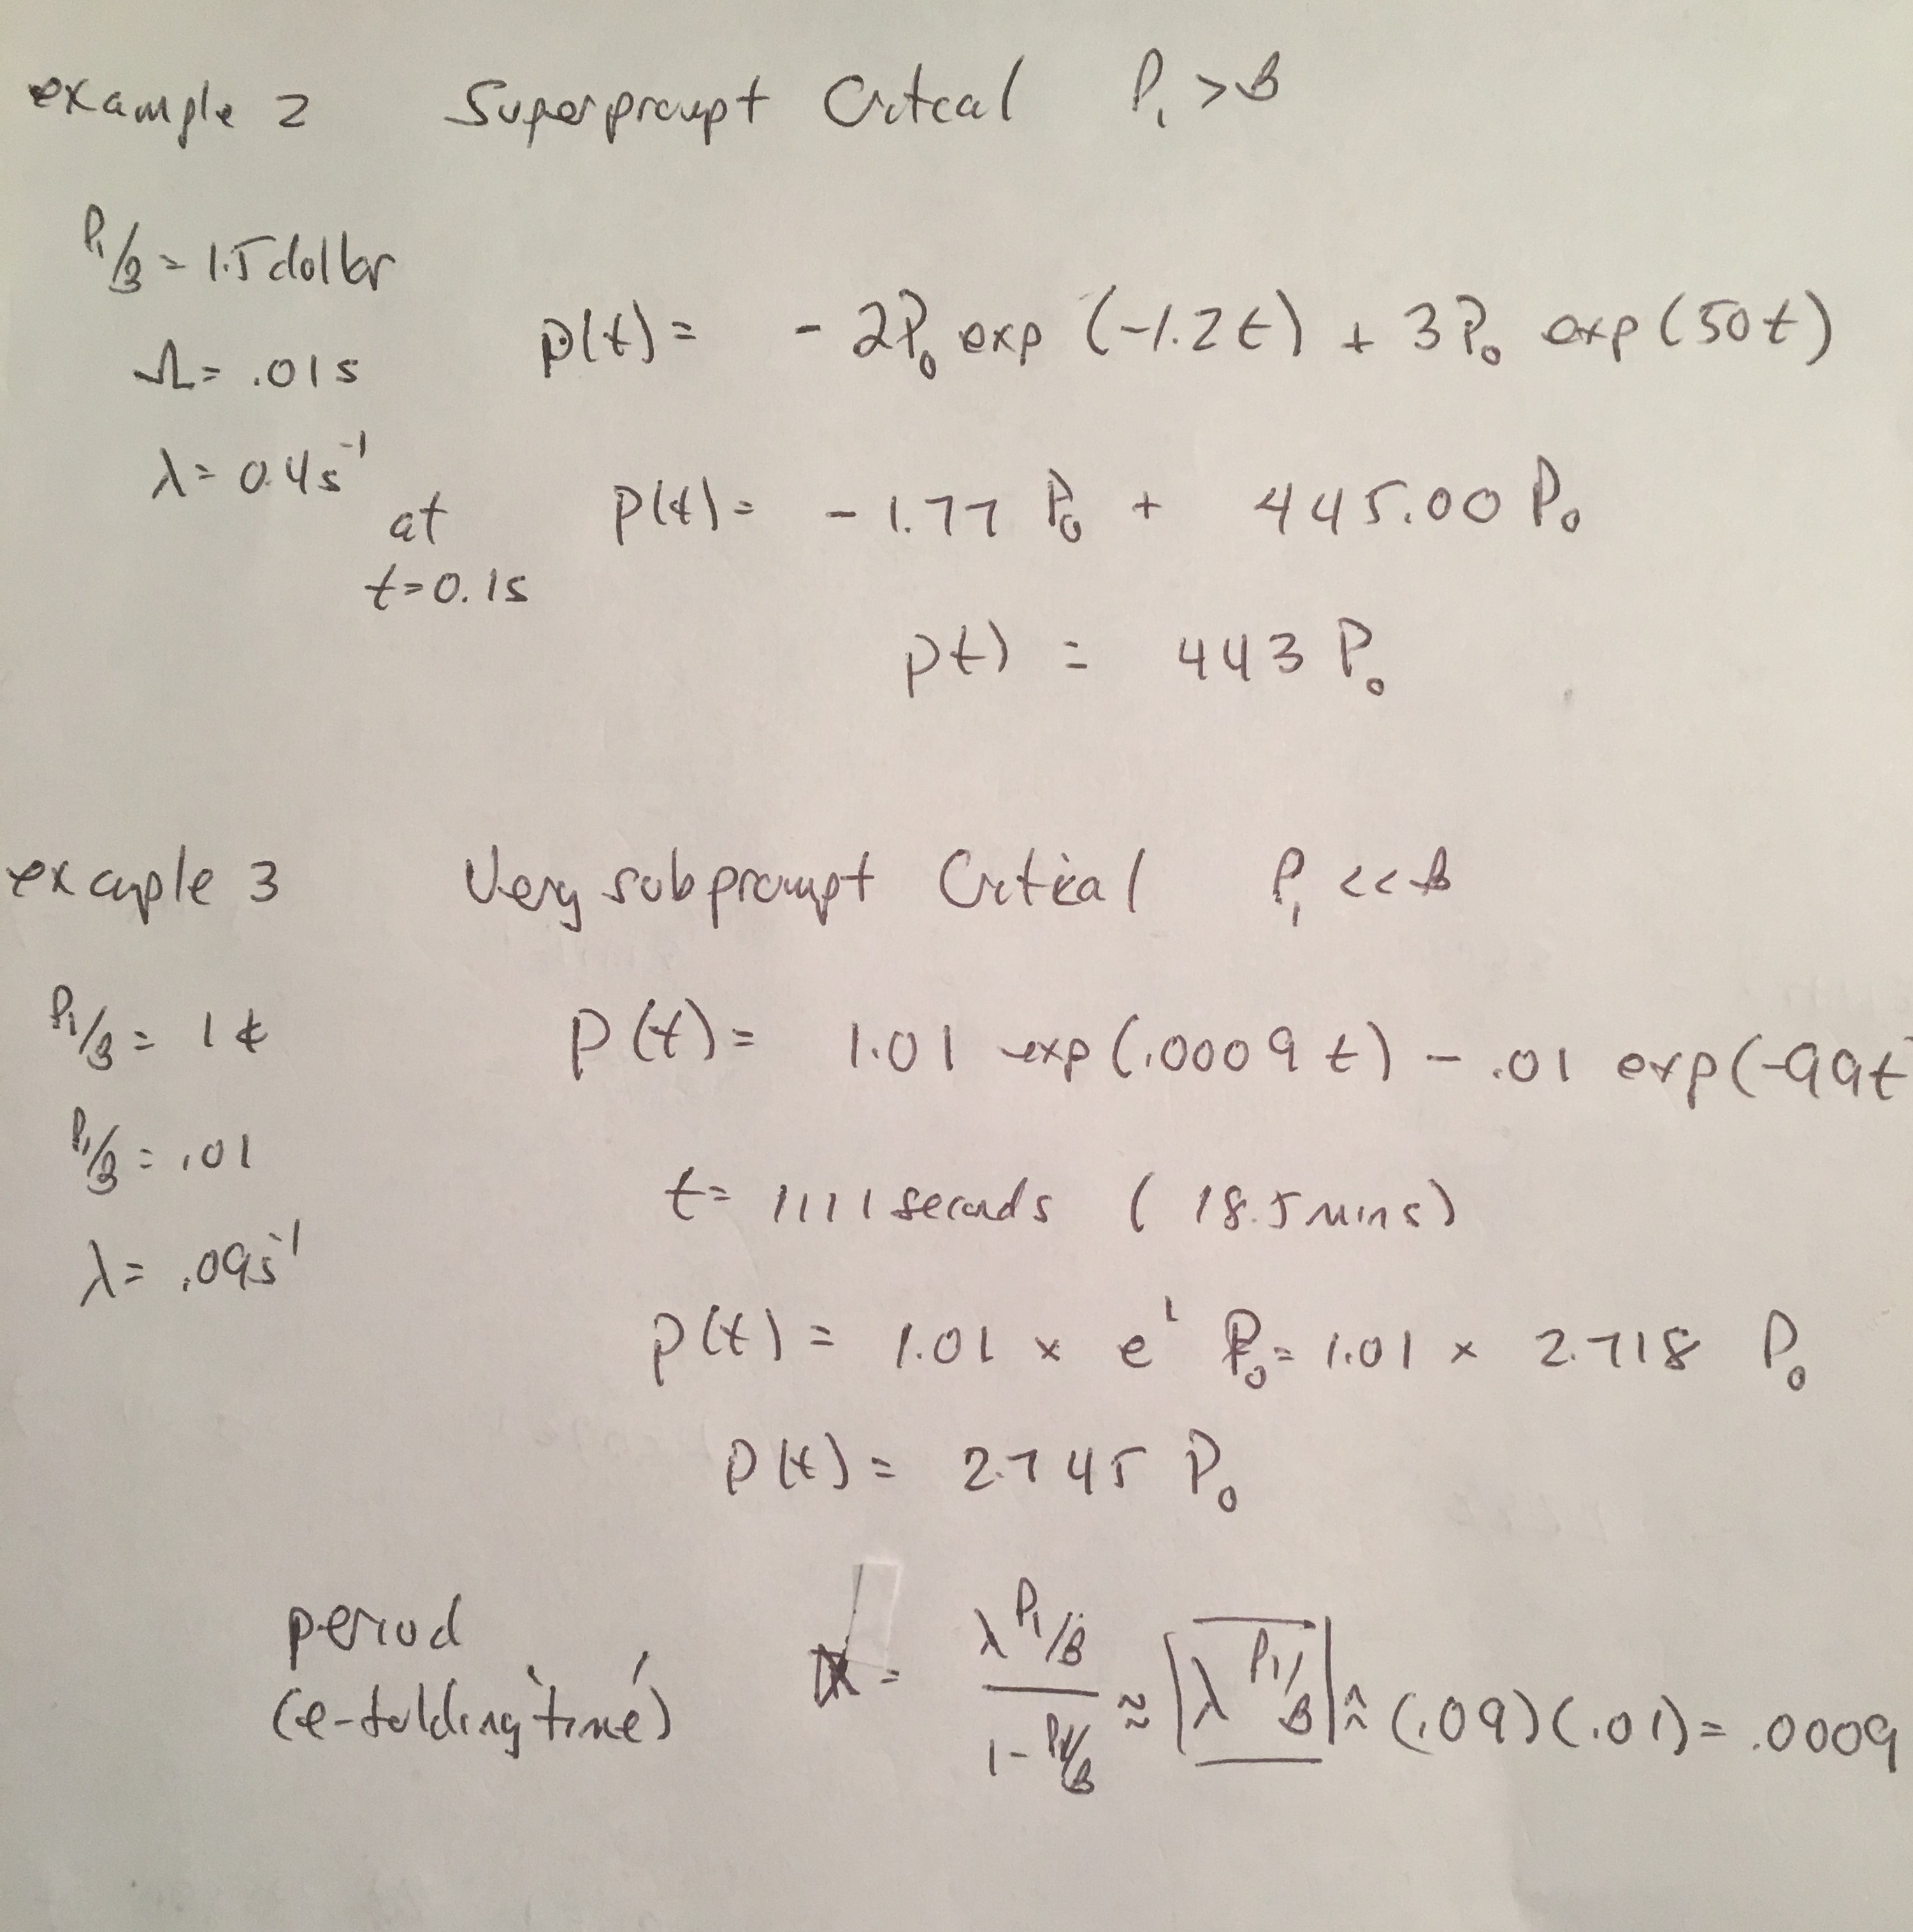 example 2 Superprompt Critcal P₁ > β
P₁/β = 1.5 dollar
p(t) = - 2P₀ exp (-1.2t) + 3P₀ exp (50t)
Λ = .01s
λ = 0.4s⁻¹
at t=0.1s
p(t) = - 1.77 P₀ + 445.00 P₀
p(t) = 443 P₀
example 3 Very subprompt Critical P₁ << β
P₁/β = 1 ¢
P(t) = 1.01 exp(.0009 t) - .01 exp(-99t
P₁/β = .01
t = 1111 seconds ( 18.5 mins)
λ = .09s⁻¹
p(t) = 1.01 x e¹ P₀ = 1.01 x 2.718 P₀
P(t) = 2.745 P₀
period
(e-folding 'time')
= λ P₁/β / 1 - P₁/β ≈ |λ P₁/β| ≈ (.09)(.01) = .0009